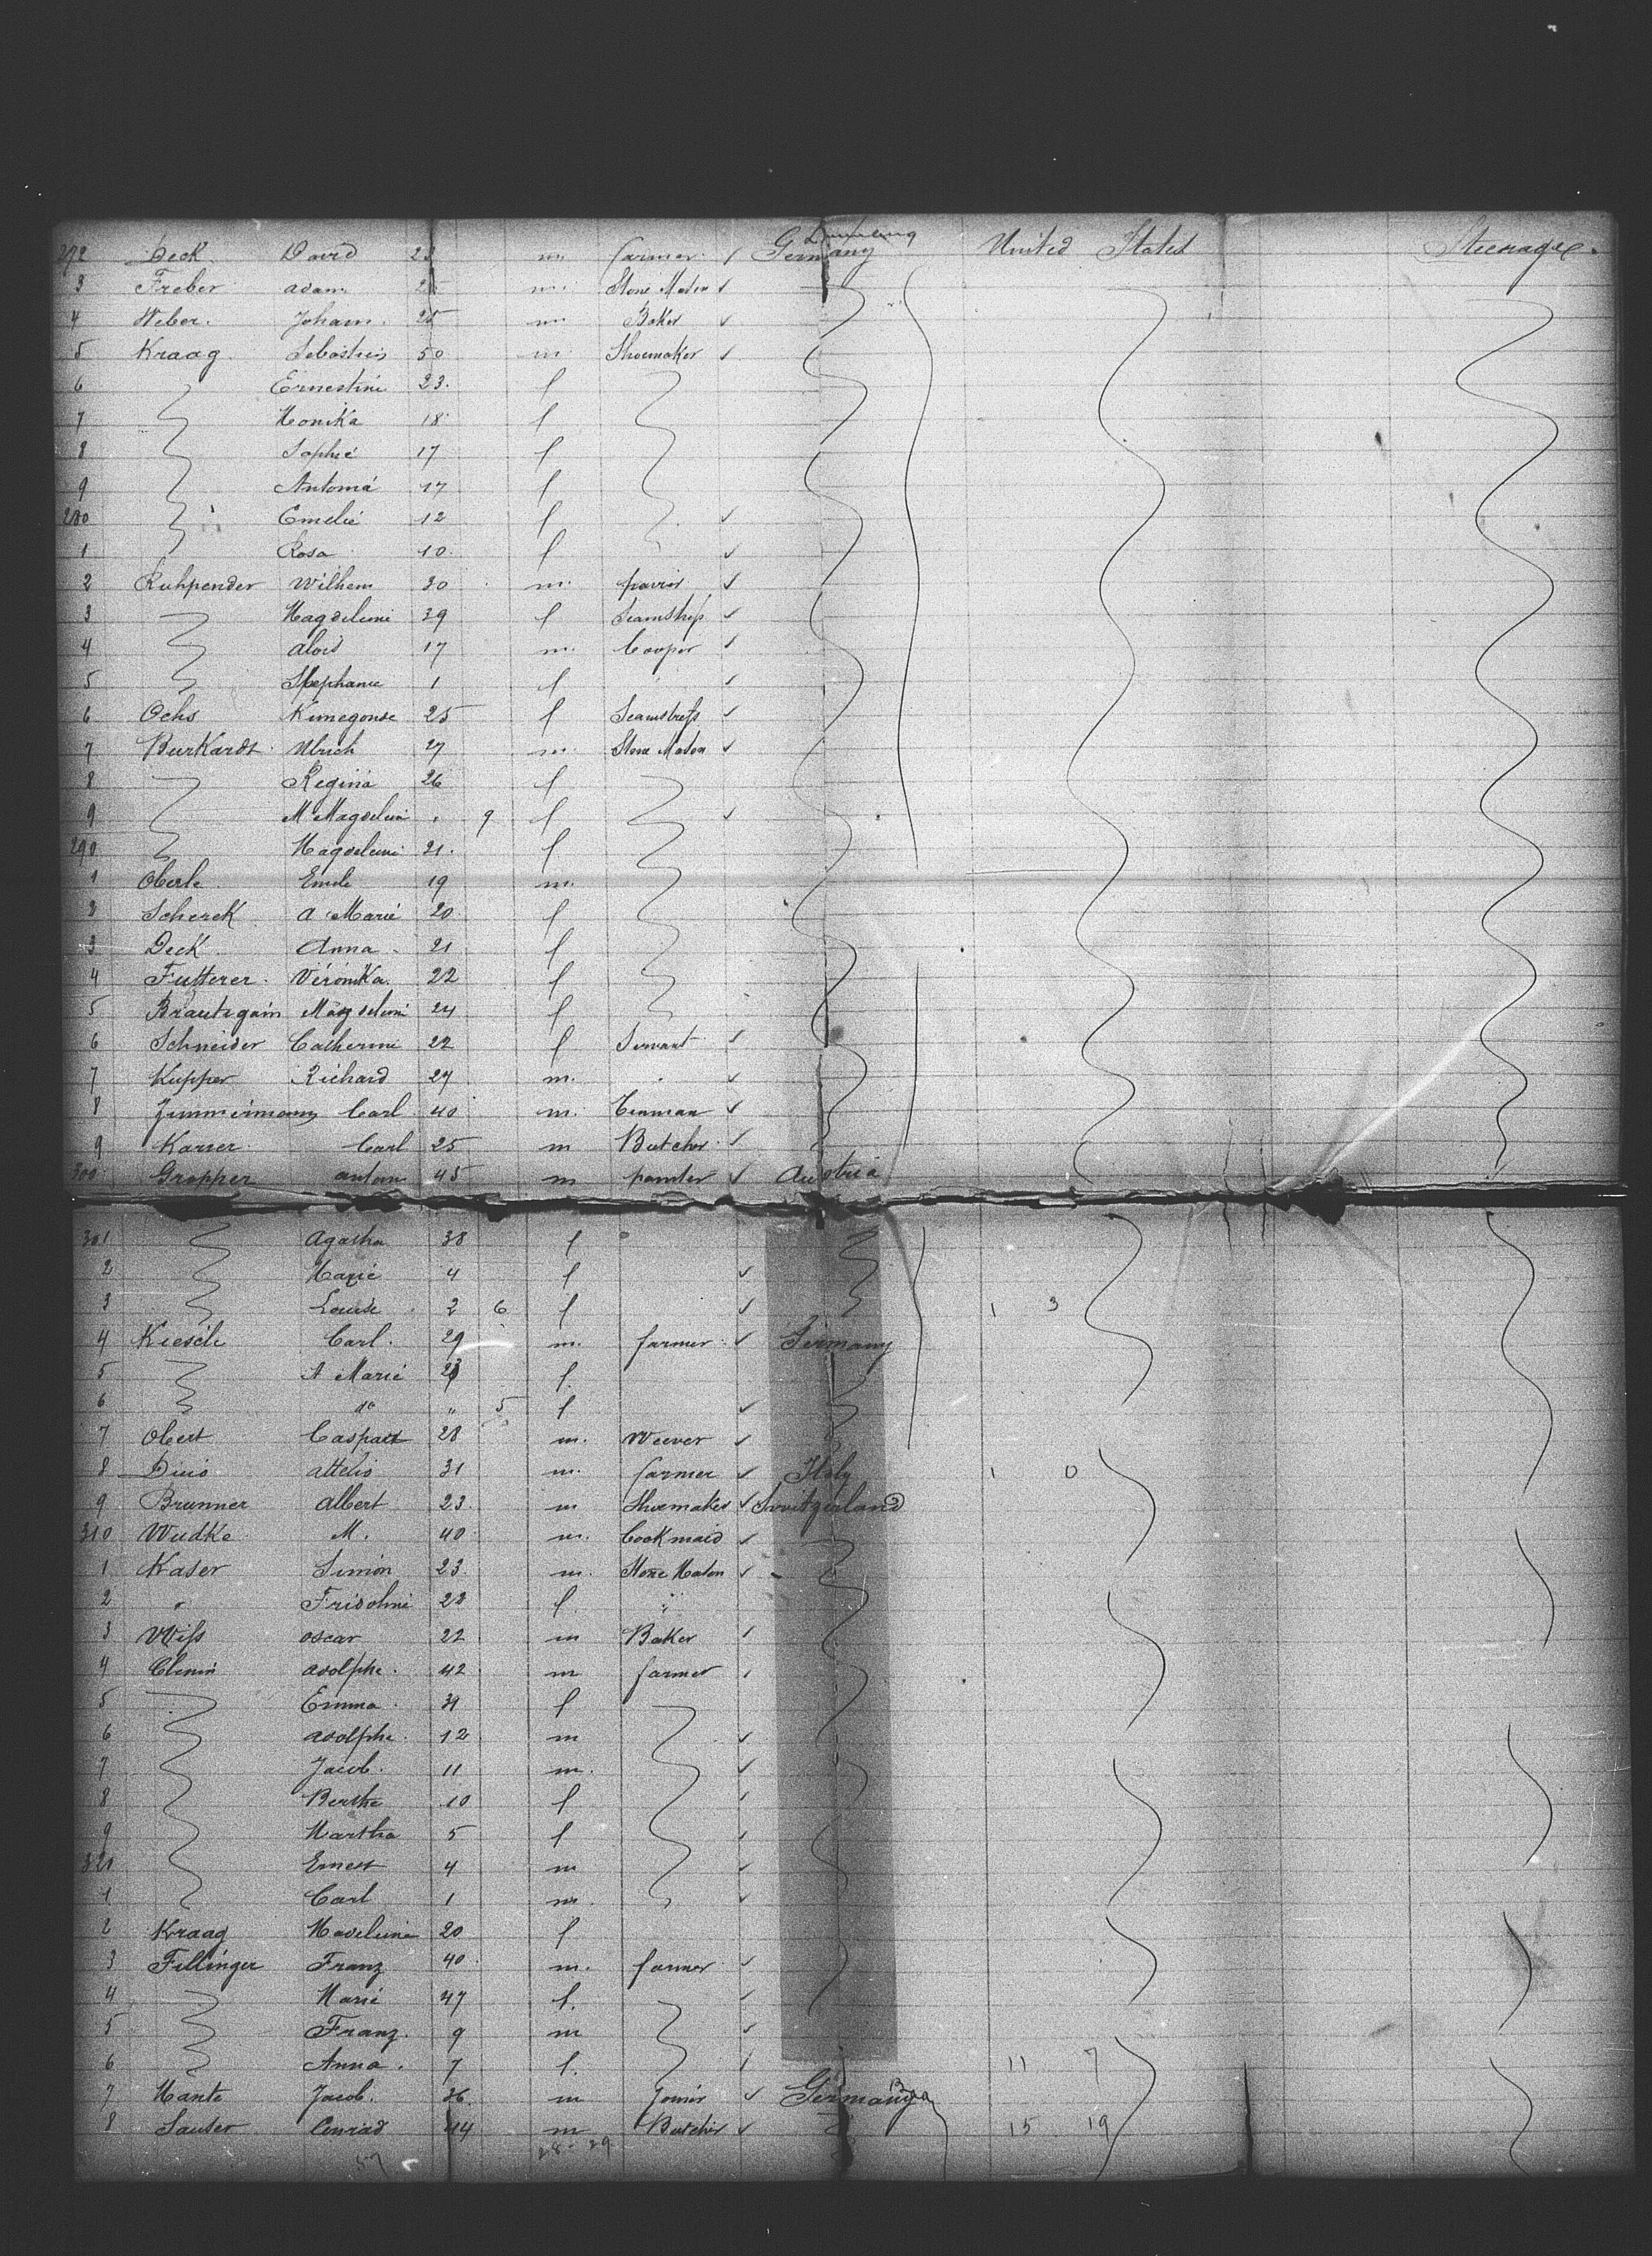 272 Deck David 23 m farmer Germany United States Steerage
3 Freber Adam 25 m Stone Mason
4 Weber Johann 25 m Baker
5 Kraag 50 m Shoemaker
6 Ernestine 23 f
7 Monika 18 f
8 Sophie 17 f
9 Antonia 17 f
280 Emelie 12 f
1 Rosa 10 f
2 Ruhpender Wilhem 30 m pavior
3 Magdeleine 39 f
4 Alois 17 m Cooper
5 Stephanie 1 f
6 Ochs Kunegonde 25 f Seamstress
7 Burkardt Ulrich 27 m Stone Mason
8 Regina 26 f
9 M Magdelein 9 f
290 Magdeleine 21 f
1 Oberle Emile 19 m
2 Scherck A Marie 20 f
3 Deck Anna 21 f
4 Futterer Véronika 22 f
5 Brautigam Magdeleine 24 f
6 Schneider Catherine 22 f Servant
7 Kupper Richard 27 m
8 Zimmermann Carl 40 m Tinman
9 Karrer Carl 25 m Butcher
300 Gropper Anton 45 m painter Austria
301 Agatha 38 f
2 Marie 4 f
3 Louise 2 6 f 1 3
4 Kiesele Carl 29 m farmer Germany
5 A Marie 23 f
6 do " 5 f
7 Obert Caspart 28 m Weever
8 attelio 31 m farmer Italy 1 0
9 Brunner Albert 23 m Shoemaker Switzerland
310 Wudke M. 40 m Cookmaid
1 Kaser Simon 23 m Stone Mason
2 " Fridoline 22 f "
3 Wiss oscar 22 m Baker
4 adolphe 42 m farmer
5 Emma 31 f
6 adolphe 12 m
7 Jacob 11 m
8 Berthe 10 f
9 Martha 5 f
321 Ernest 4 m
1 Carl 1 m
2 Kraag Madeleine 20 f
3 Fillinger Franz 40 m farmer
4 Marie 47 f
5 Franz 9 m
6 Anna 7 f 11 7
7 Mante Jacob 36 m Joiner Germany
8 Sauter Conrad 44 m Butcher 15 19
57 28 - 29